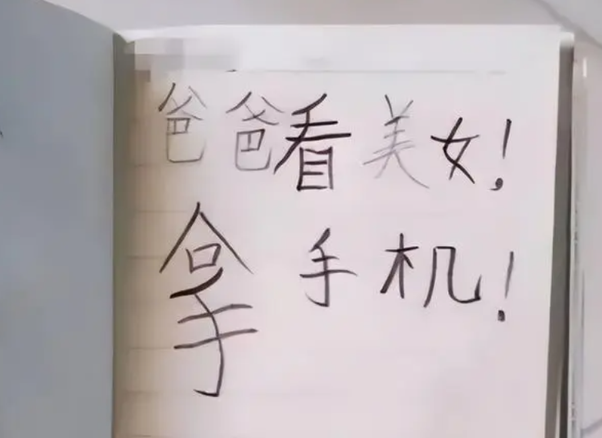 爸爸看美女!
拿手机!